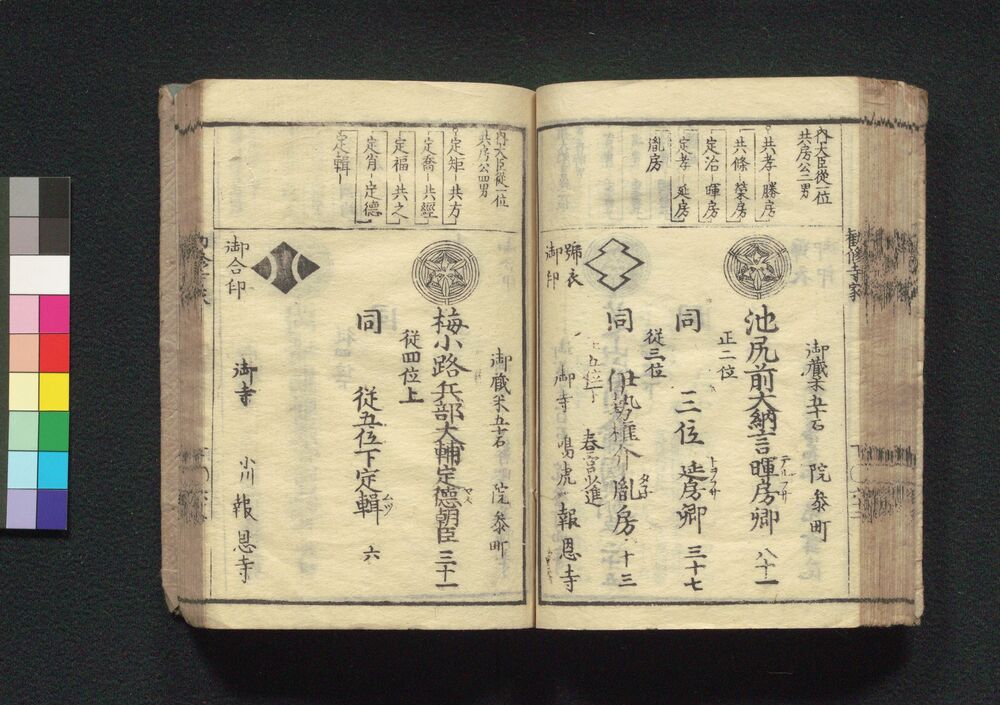 勧修寺家
内大臣従一位
共房公二男
共孝－勝房
共條－榮房
定治　暉房
定孝　延房
胤房
御藏米五十石　院参町
池尻前大納言暉房卿　八十一
テルフサ
正二位
同　三位　延房卿　三十七
従三位
同　伊勢権介　胤房　十三
タネ
五位下　春宮少進
號衣
御印
御寺　鳴虎　報恩寺
内大臣従一位
共房公四男
定矩－共方
定喬－共經
定福－共之
定肖－定德
定輯
御藏米五十石　院参町
梅小路兵部大輔定德朝臣　三十一
従四位上
同　従五位下定輯　六
ムツ
御合印
御寺　小川　報恩寺